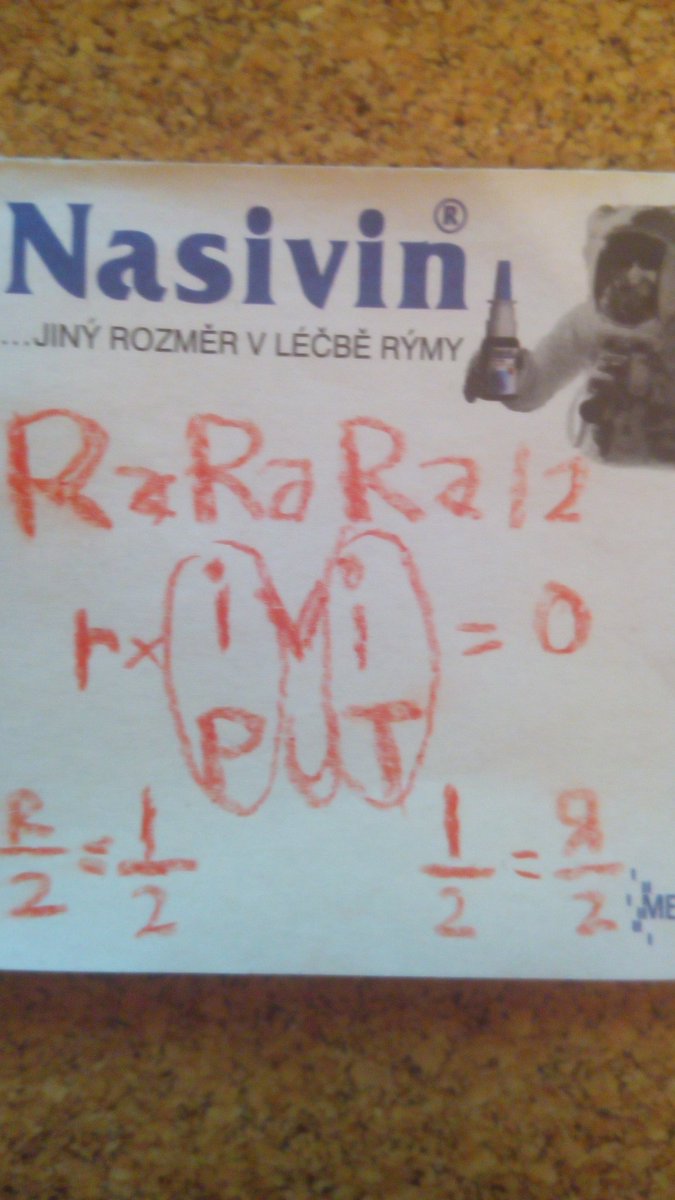 Nasivin®
...JINÝ ROZMĚR V LÉČBĚ RÝMY
RaRaRa12
r× i V i = 0
P U T
R/2 = 1/2 1/2 = Я/2
ME